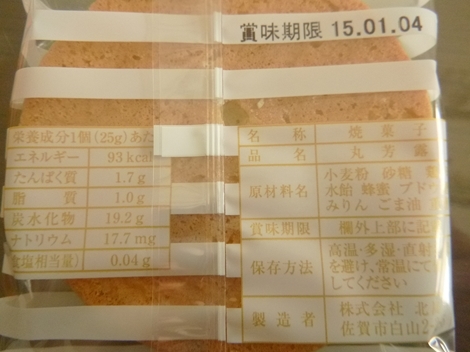 賞味期限 15.01.04
栄養成分1個(25g)あた
エネルギー 93kcal
たんぱく質 1.7g
脂質 1.0g
炭水化物 19.2g
ナトリウム 17.7mg
食塩相当量) 0.04g
名称 焼菓子
品名 丸芳露
原材料名 小麦粉 砂糖
水飴 蜂蜜 ブドウ
みりん ごま油
賞味期限 欄外上部に記
保存方法 高温・多湿・直射
を避け、常温にて
してください
製造者 株式会社 北
佐賀市白山2